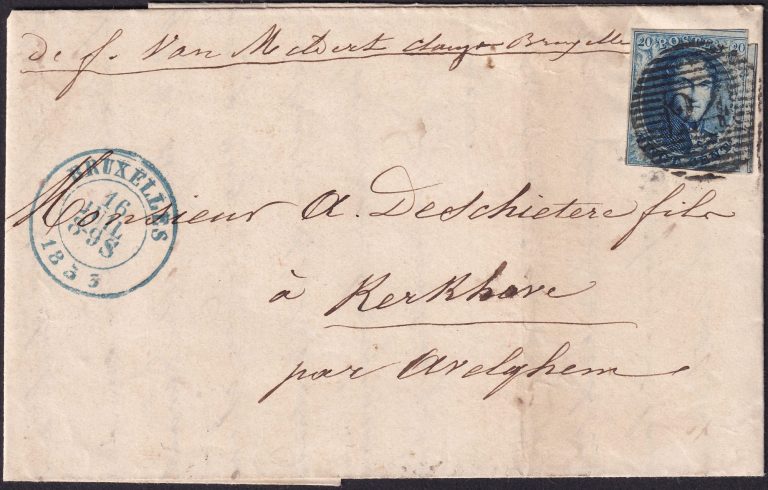 de f. Van
Bruxelles
20 20
BRUXELLES
16
JUIL
8-9S
1853
Monsieur A. DeSchietere fils
à Kerkhove
par Avelghem